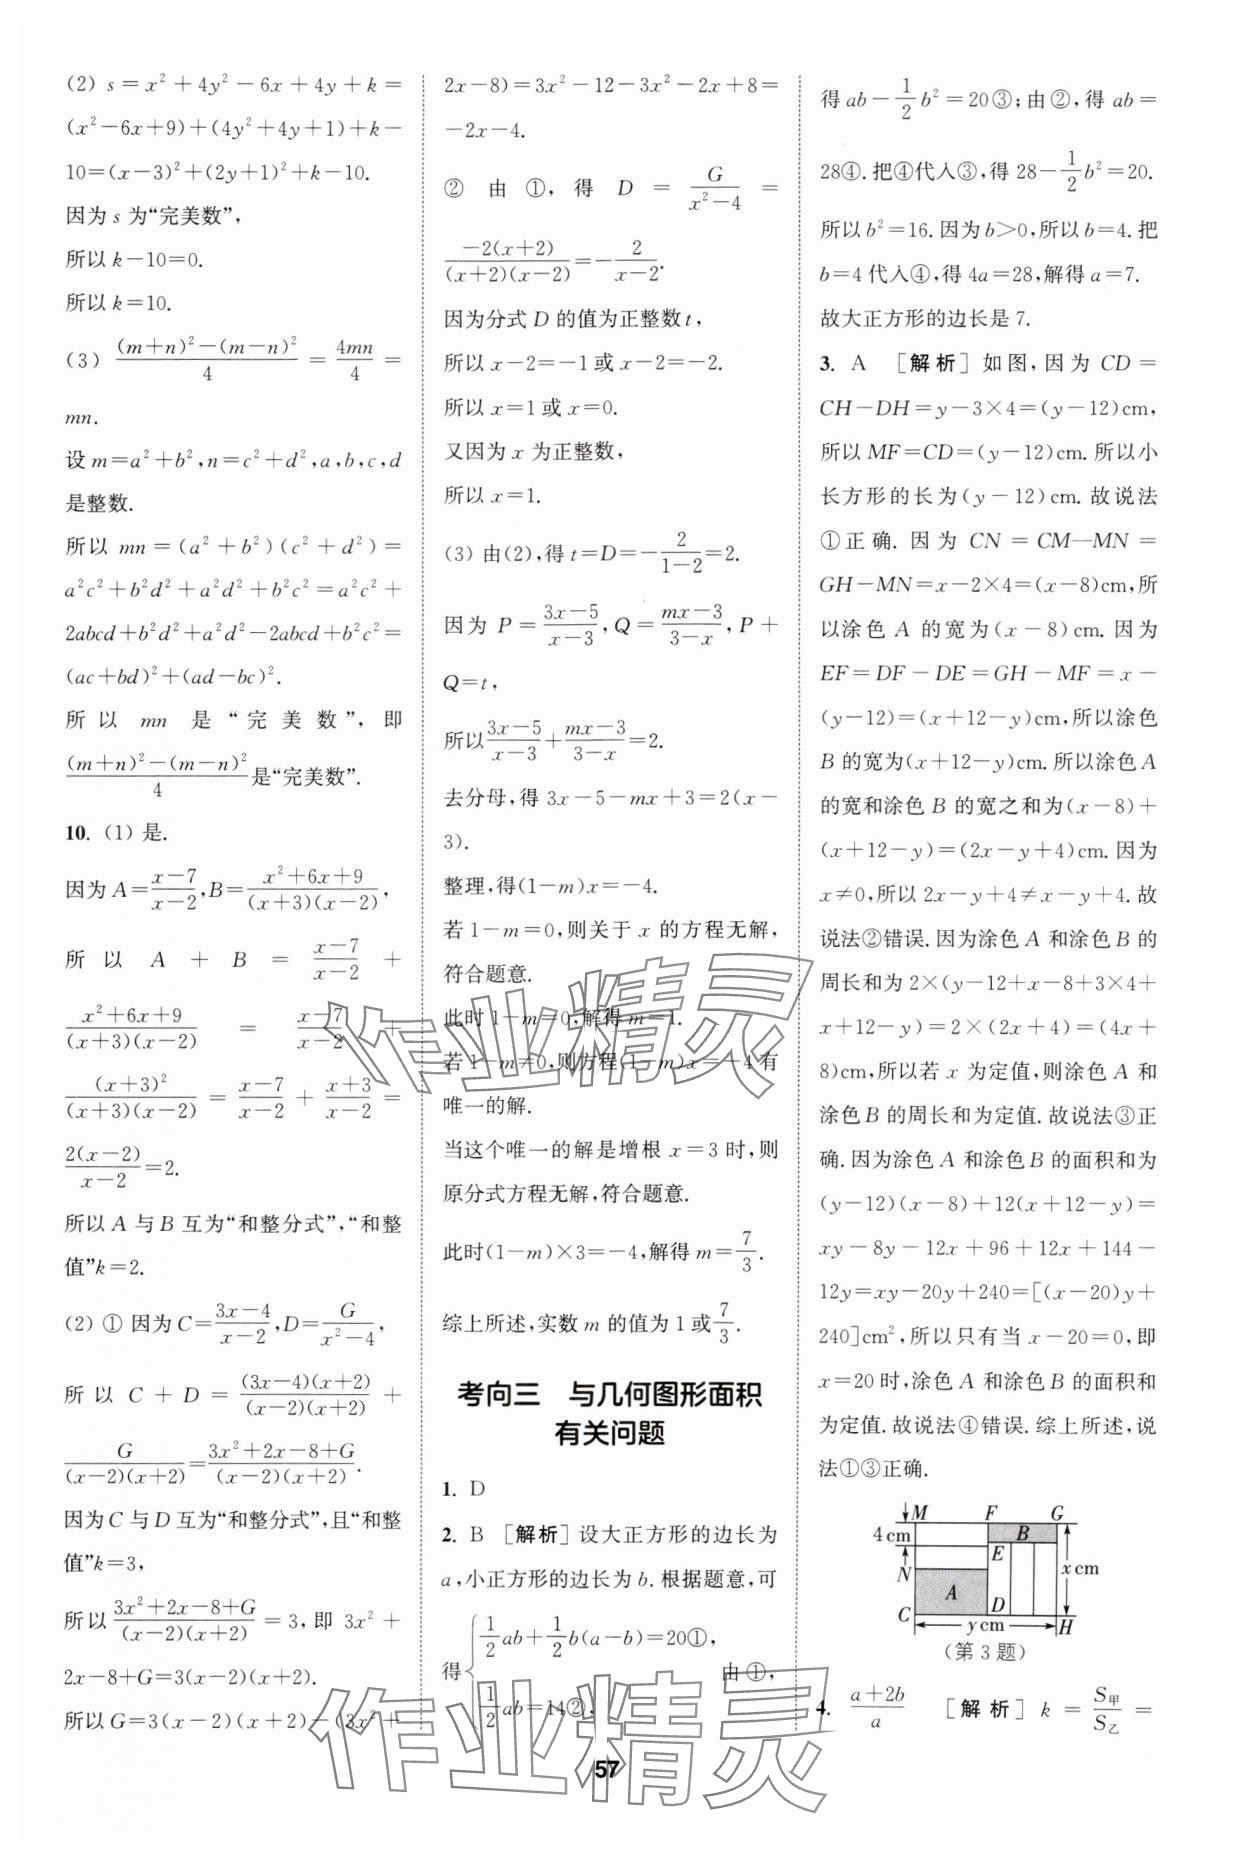 (2) s=x²+4y²-6x+4y+k=
(x²-6x+9)+(4y²+4y+1)+k-
10=(x-3)²+(2y+1)²+k-10.
因为 s 为“完美数”,
所以 k-10=0.
所以 k=10.
(3) \frac{(m+n)²-(m-n)²}{4} = \frac{4mn}{4} =
mn.
设 m=a²+b²,n=c²+d²,a,b,c,d
是整数.
所以 mn=(a²+b²)(c²+d²)=
a²c²+b²d²+a²d²+b²c²=a²c²+
2abcd+b²d²+a²d²-2abcd+b²c²=
(ac+bd)²+(ad-bc)².
所以 mn 是“完美数”,即
\frac{(m+n)²-(m-n)²}{4}是“完美数”.
10. (1) 是.
因为 A=\frac{x-7}{x-2},B=\frac{x²+6x+9}{(x+3)(x-2)},
所以 A + B = \frac{x-7}{x-2} +
\frac{x²+6x+9}{(x+3)(x-2)} = \frac{x-7}{x-2} +
\frac{(x+3)²}{(x+3)(x-2)} = \frac{x-7}{x-2} + \frac{x+3}{x-2} =
\frac{2(x-2)}{x-2}=2.
所以 A 与 B 互为“和整分式”,“和整
值”k=2.
(2) ① 因为 C=\frac{3x-4}{x-2},D=\frac{G}{x²-4},
所以 C + D = \frac{(3x-4)(x+2)}{(x-2)(x+2)} +
\frac{G}{(x-2)(x+2)}=\frac{3x²+2x-8+G}{(x-2)(x+2)}.
因为 C 与 D 互为“和整分式”,且“和整
值”k=3,
所以\frac{3x²+2x-8+G}{(x-2)(x+2)}=3,即 3x²+
2x-8+G=3(x-2)(x+2).
所以 G=3(x-2)(x+2)-(3x²+
2x-8)=3x²-12-3x²-2x+8=
-2x-4.
② 由 ①,得 D = \frac{G}{x²-4} =
\frac{-2(x+2)}{(x+2)(x-2)}=-\frac{2}{x-2}.
因为分式 D 的值为正整数 t,
所以 x-2=-1 或 x-2=-2.
所以 x=1 或 x=0.
又因为 x 为正整数,
所以 x=1.
(3) 由(2),得 t=D=-\frac{2}{1-2}=2.
因为 P=\frac{3x-5}{x-3},Q=\frac{mx-3}{3-x},P+
Q=t,
所以\frac{3x-5}{x-3}+\frac{mx-3}{3-x}=2.
去分母,得 3x-5-mx+3=2(x-
3).
整理,得(1-m)x=-4.
若 1-m=0,则关于 x 的方程无解,
符合题意.
此时 1-m=0,解得 m=1.
若 1-m≠0,则方程(1-m)x=-4 有
唯一的解.
当这个唯一的解是增根 x=3 时,则
原分式方程无解,符合题意.
此时(1-m)×3=-4,解得 m=\frac{7}{3}.
综上所述,实数 m 的值为 1 或\frac{7}{3}.
考向三 与几何图形面积
有关问题
1. D
2. B [解析]设大正方形的边长为
a,小正方形的边长为 b.根据题意,可
得{\frac{1}{2}ab+\frac{1}{2}b(a-b)=20①,
\frac{1}{2}ab=14②, 由①,
得 ab-\frac{1}{2}b²=20③;由②,得 ab=
28④.把④代入③,得 28-\frac{1}{2}b²=20.
所以 b²=16.因为 b>0,所以 b=4.把
b=4 代入④,得 4a=28,解得 a=7.
故大正方形的边长是 7.
3. A [解析]如图,因为 CD=
CH-DH=y-3×4=(y-12)cm,
所以 MF=CD=(y-12)cm.所以小
长方形的长为(y-12)cm.故说法
①正确.因为 CN=CM—MN=
GH-MN=x-2×4=(x-8)cm,所
以涂色 A 的宽为(x-8)cm.因为
EF=DF-DE=GH-MF=x-
(y-12)=(x+12-y)cm,所以涂色
B 的宽为(x+12-y)cm.所以涂色 A
的宽和涂色 B 的宽之和为(x-8)+
(x+12-y)=(2x-y+4)cm.因为
x≠0,所以 2x-y+4≠x-y+4.故
说法②错误.因为涂色 A 和涂色 B 的
周长和为 2×(y-12+x-8+3×4+
x+12-y)=2×(2x+4)=(4x+
8)cm,所以若 x 为定值,则涂色 A 和
涂色 B 的周长和为定值.故说法③正
确.因为涂色 A 和涂色 B 的面积和为
(y-12)(x-8)+12(x+12-y)=
xy-8y-12x+96+12x+144-
12y=xy-20y+240=[(x-20)y+
240]cm²,所以只有当 x-20=0,即
x=20 时,涂色 A 和涂色 B 的面积和
为定值.故说法④错误.综上所述,说
法①③正确.
M F G
4 cm B
E
N x cm
A
C D
y cm H
(第 3 题)
4. \frac{a+2b}{a} [解析] k = \frac{S甲}{S乙} =
57
作业精灵
作业精灵